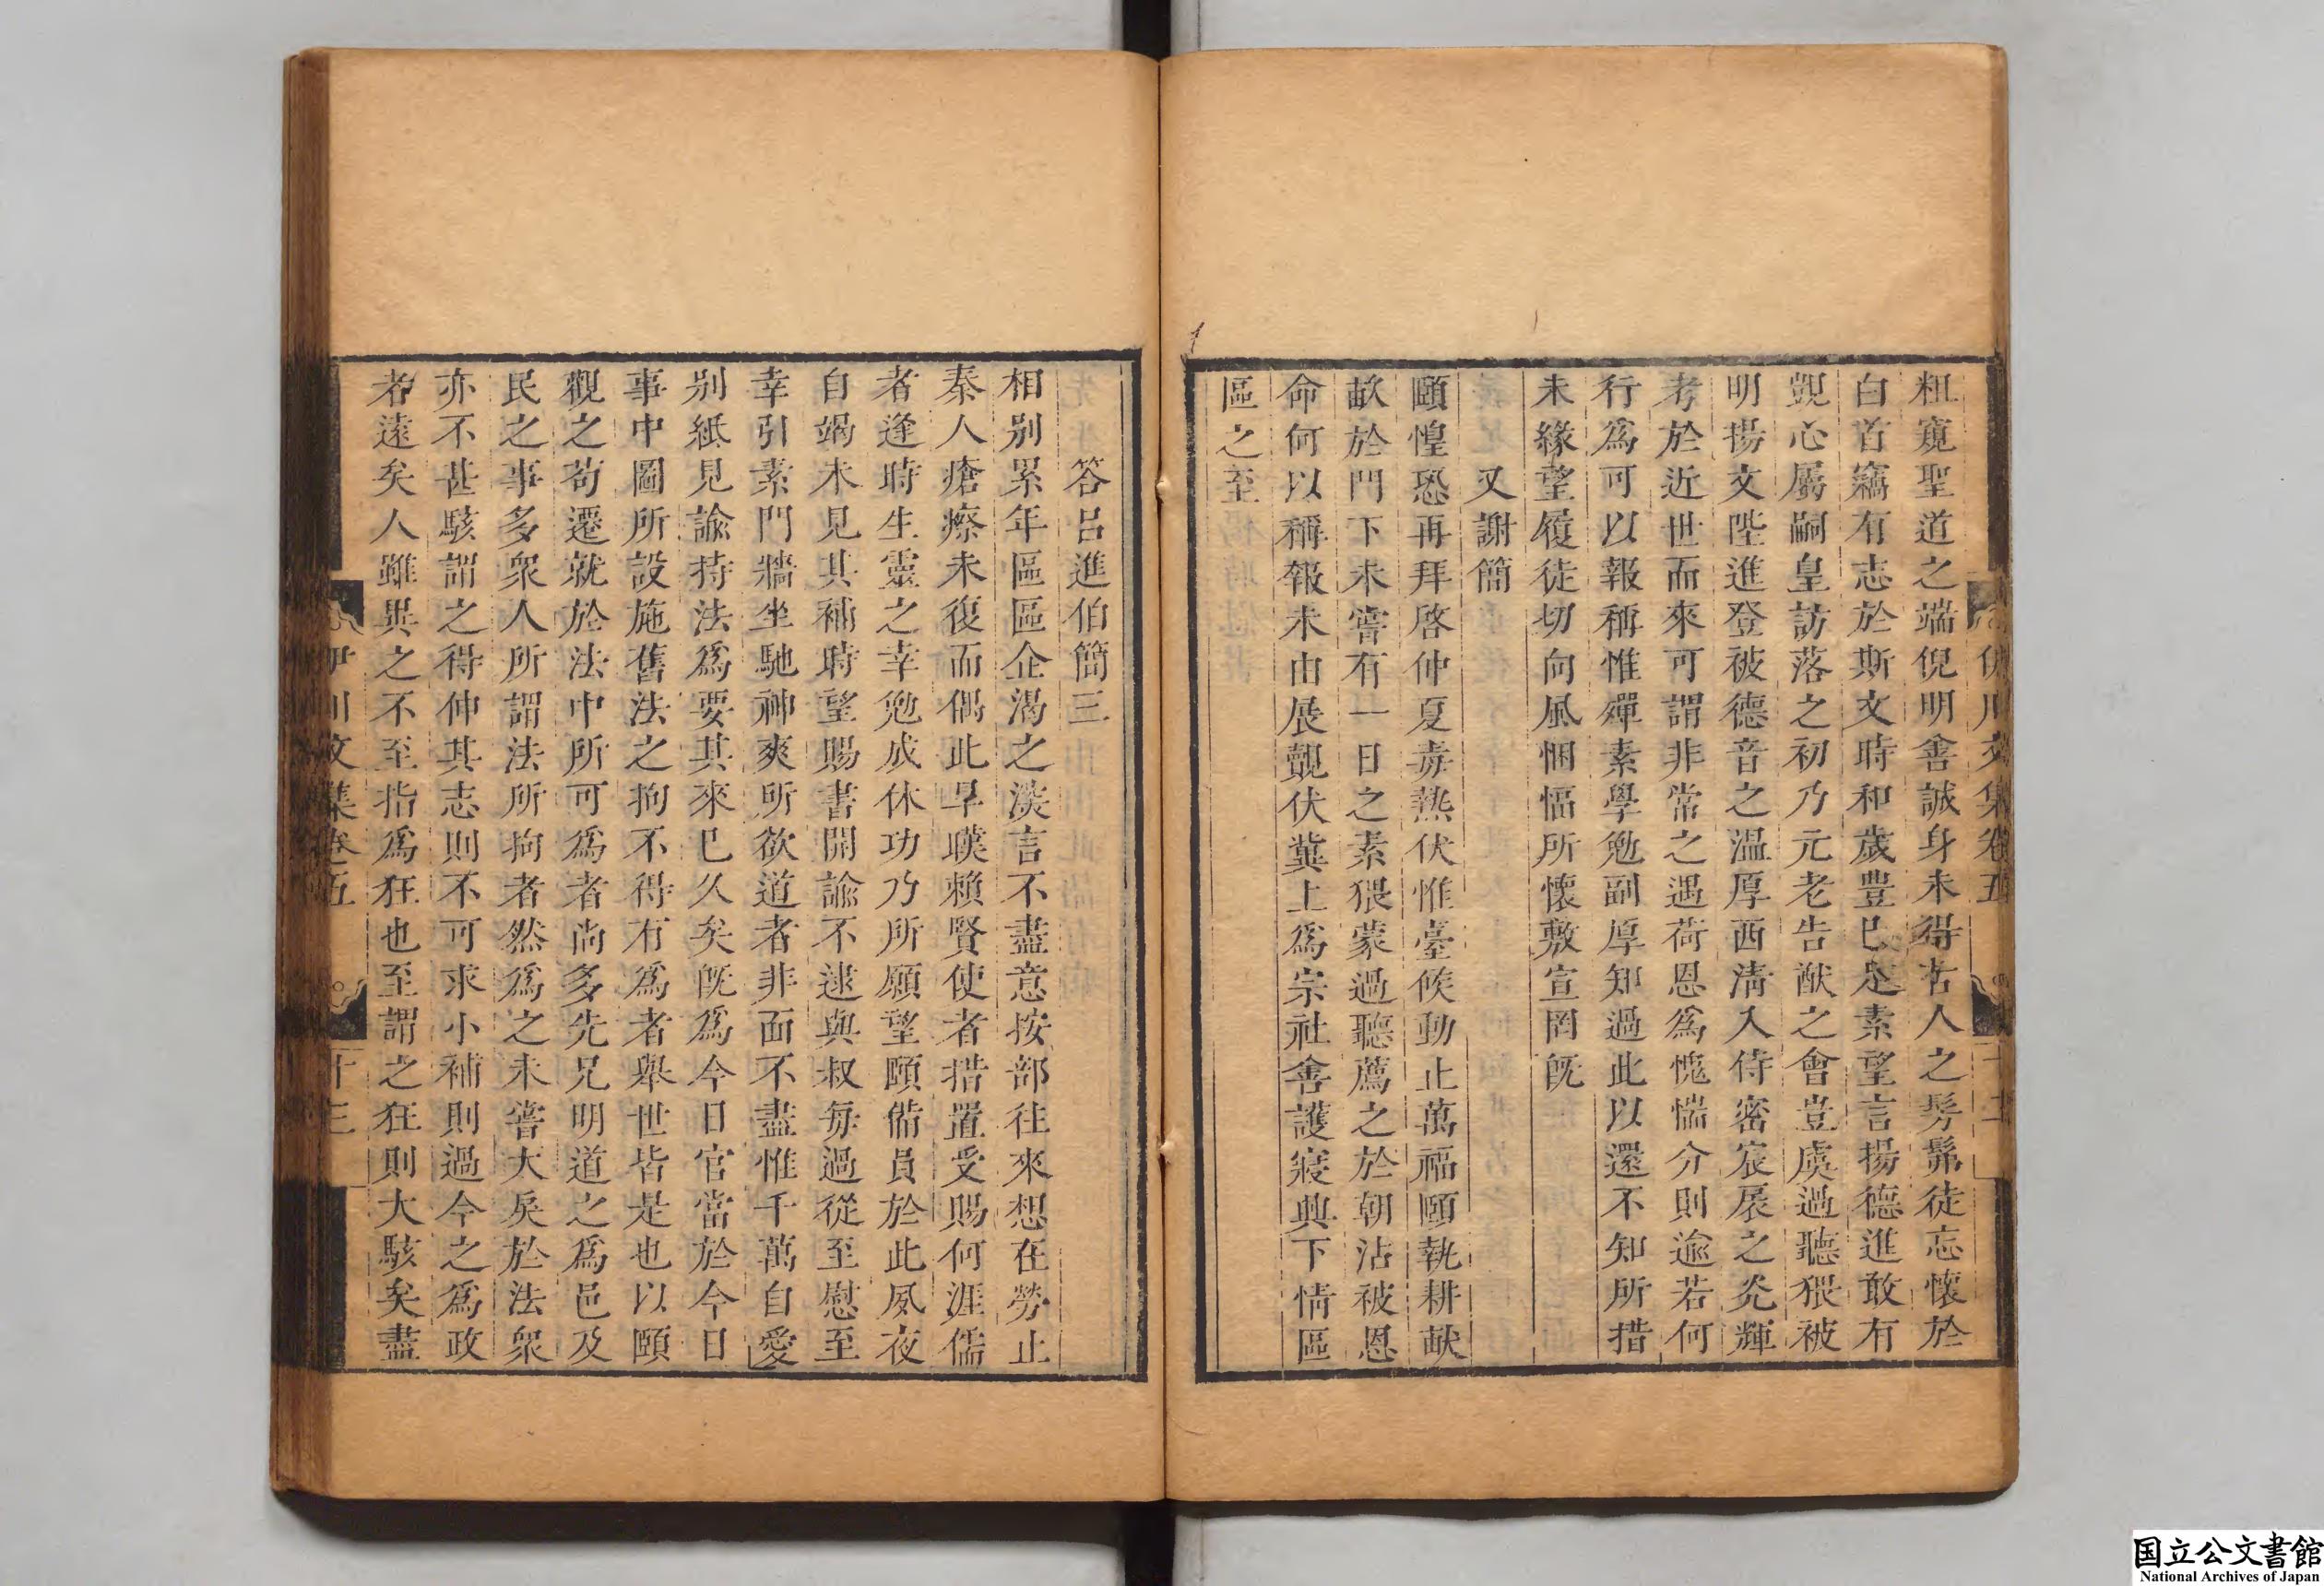 伊川文集卷五
十二
粗窺聖道之端倪明善誠身未得古人之髣髴徒忘懷於
白首竊有志於斯文時和歲豊巳足素望言揚德進敢有
覬心屬嗣皇訪落之初乃元老告猷之會豈虞過聽猥被
明揚文陛進登被德音之溫厚西淸入侍密宸扆之光輝
考於近世而來可謂非常之遇荷恩爲愧惴介則逾若何
行爲可以報稱惟殫素學勉副厚知過此以還不知所措
未緣望履徒切向風悃愊所懷敷宣罔旣
又謝簡
頤惶恐再拜啓仲夏毒熱伏惟臺候動止萬福頤執耕畎
畝於門下未嘗有一日之素猥蒙過聽薦之於朝沾被恩
命何以稱報未由展覿伏冀上爲宗社善護寢興下情區
區之至
答呂進伯簡三
相别累年區區企渴之深言不盡意按部往來想在勞止
秦人瘡瘵未復而偶此旱暵賴賢使者措置受賜何涯儒
者逢時生靈之幸勉成休功乃所願望頤備員於此夙夜
自竭未見其補時望賜書開諭不逮與叔毎過從至慰至
幸引素門牆坐馳神爽所欲道者非面不盡惟千萬自愛
别紙見諭持法爲要其來巳久矣旣爲今日官當於今日
事中圖所設施舊法之拘不得有爲者舉世皆是也以頤
觀之苟遷就於法中所可爲者尚多先兄明道之爲邑及
民之事多衆人所謂法所拘者然爲之未嘗大戾於法衆
亦不甚駭謂之得伸其志則不可求小補則過今之爲政
者遠矣人雖異之不至指爲狂也至謂之狂則大駭矣盡
伊川文集卷五
十三
国立公文書館
National Archives of Japan